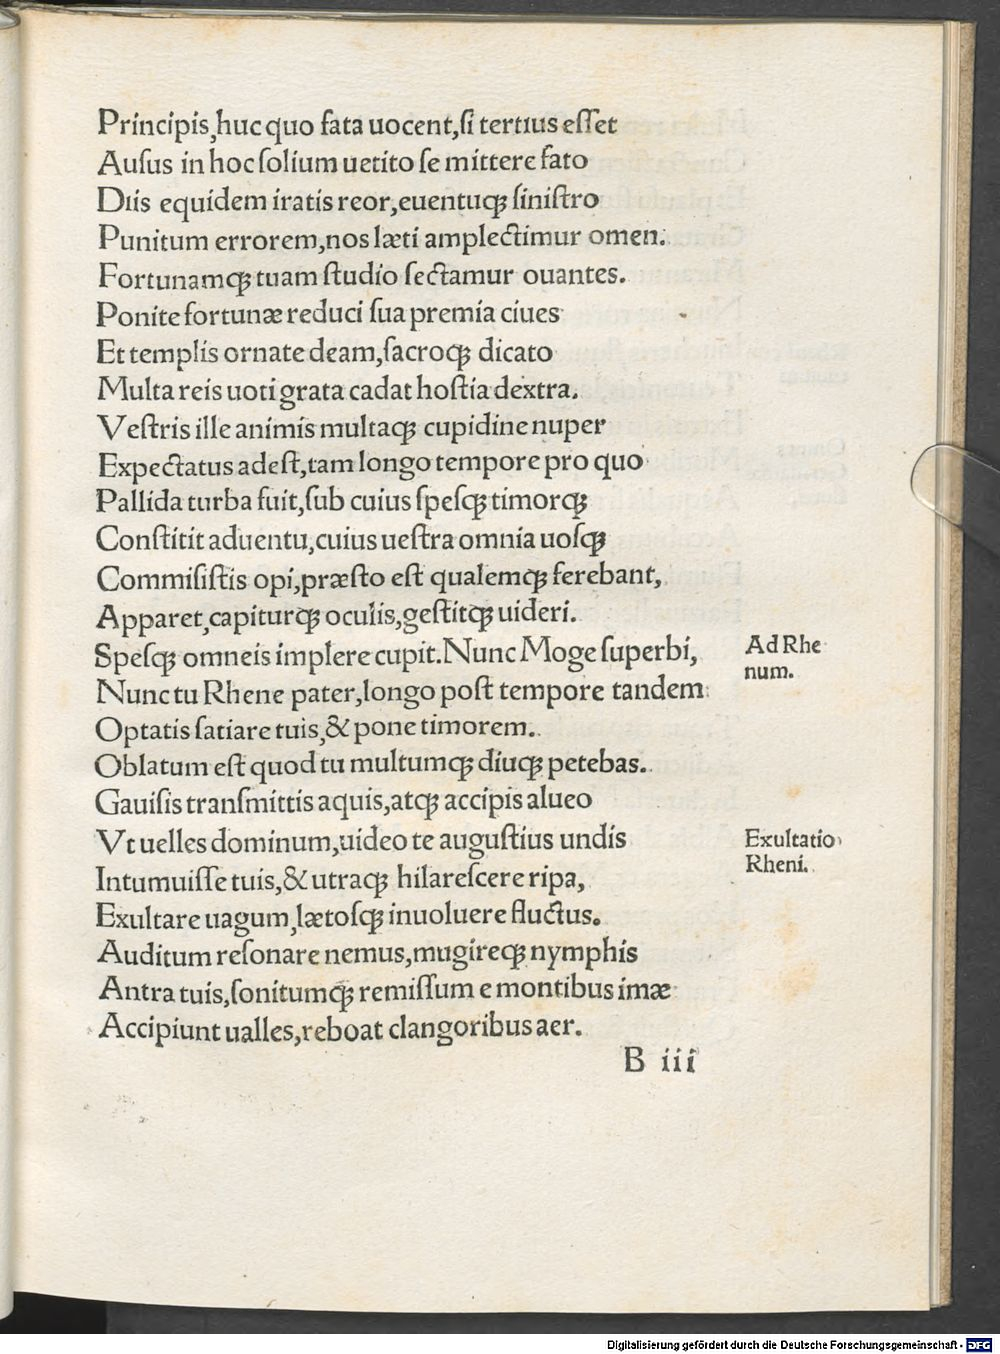 Principis,huc quo fata uocent,ſi tertius eſſet
Auſus in hoc ſolium uetito ſe mittere fato
Diis equidem iratis reor,euentuqꝫ ſiniſtro
Punitum errorem,nos læti amplectimur omen.
Fortunamqꝫ tuam ſtudio ſectamur ouantes.
Ponite fortunæ reduci ſua premia ciues
Et templis ornate deam,ſacroqꝫ dicato
Multa reis uoti grata cadat hoſtia dextra.
Veſtris ille animis multaqꝫ cupidine nuper
Expectatus adeſt,tam longo tempore pro quo
Pallida turba fuit,ſub cuius ſpeſqꝫ timorqꝫ
Conſtitit aduentu,cuius ueſtra omnia uoſqꝫ
Commiſiſtis opi,præſto eſt qualemqꝫ ferebant,
Apparet,capiturqꝫ oculis,geſtitqꝫ uideri.
Speſqꝫ omneis implere cupit.Nunc Moge ſuperbi,
Ad Rhe
num.
Nunc tu Rhene pater,longo poſt tempore tandem
Optatis ſatiare tuis,& pone timorem.
Oblatum eſt quod tu multumqꝫ diuqꝫ petebas.
Gauiſis tranſmittis aquis,atqꝫ accipis alueo
Vt uelles dominum,uideo te auguſtius undis
Exultatio
Rheni.
Intumuiſſe tuis,& utraqꝫ hilareſcere ripa,
Exultare uagum,lætoſqꝫ inuoluere fluctus.
Auditum reſonare nemus,mugireqꝫ nymphis
Antra tuis,ſonitumqꝫ remiſſum e montibus imæ
Accipiunt ualles,reboat clangoribus aer.
B iii
Digitalisierung gefördert durch die Deutsche Forschungsgemeinschaft - DFG